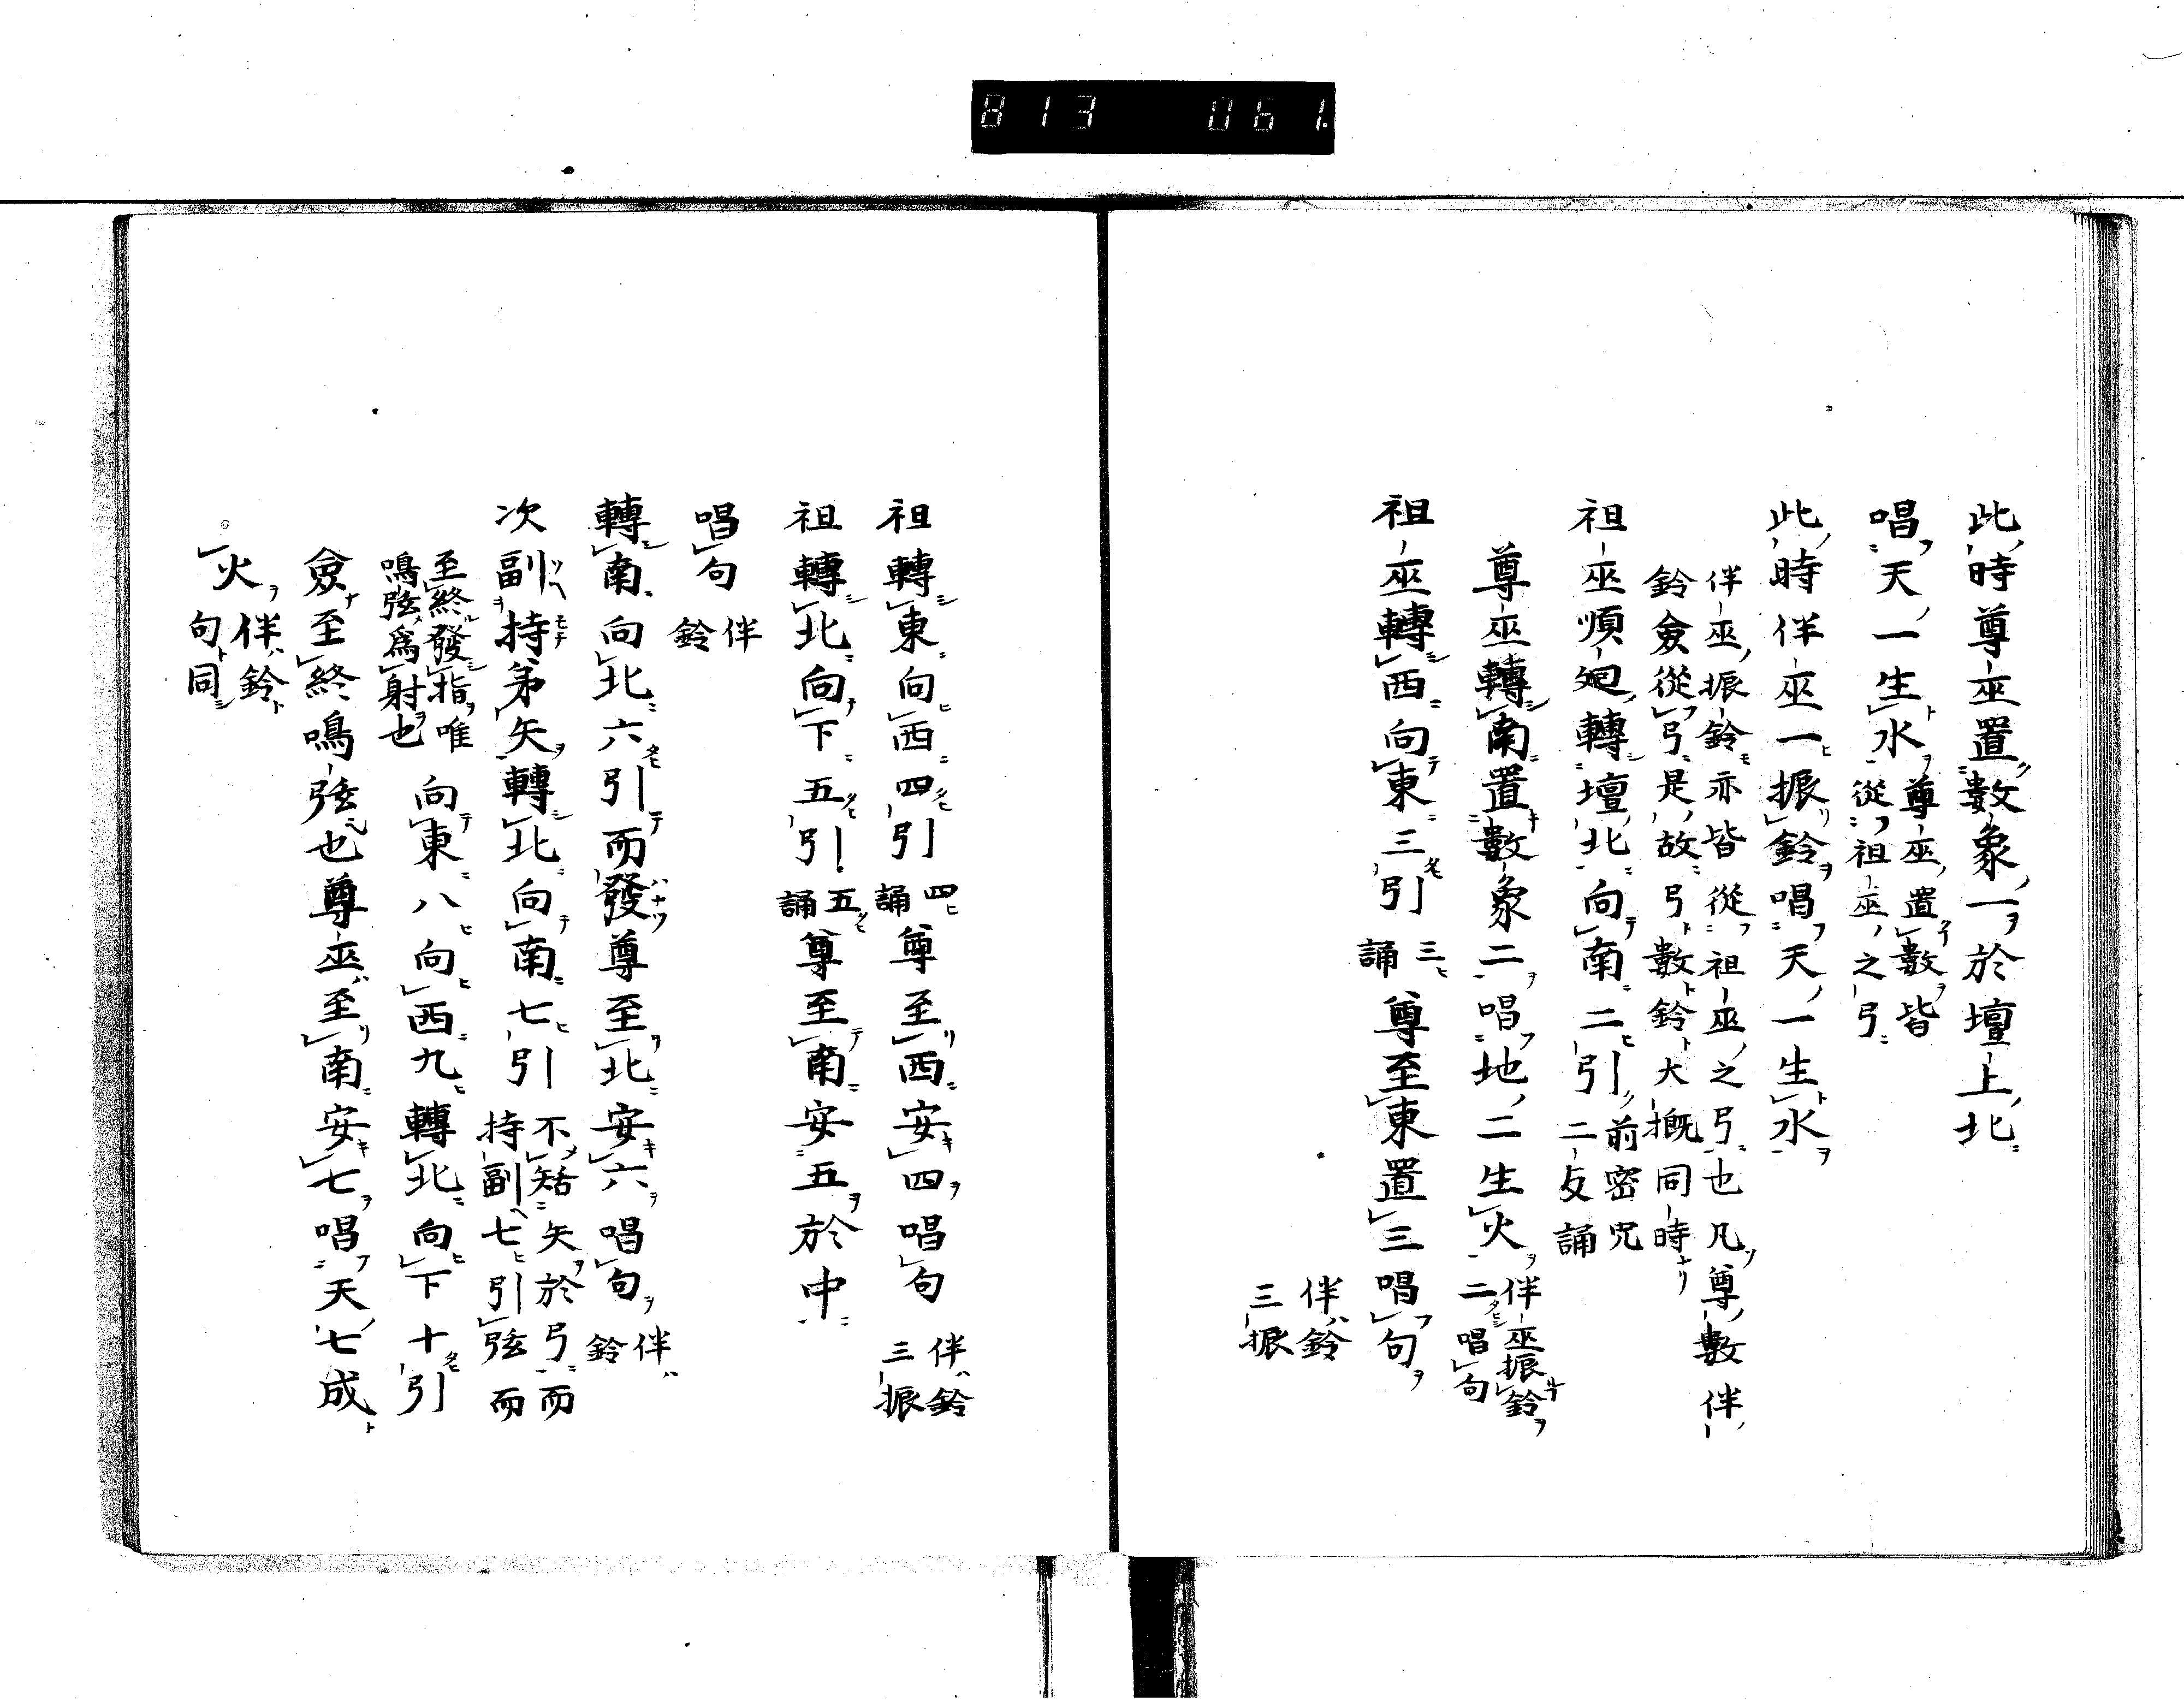 813 061
此時尊巫置數象一於壇上北
唱天一生水 尊巫置數皆
從祖巫之弓
此時伴巫一振鈴唱天一生水
伴巫振鈴亦皆從祖巫之弓也凡尊數伴
鈴僉從弓是故弓數鈴大概同時
祖巫順廻轉壇北向南二引 前密咒
二反誦
尊巫轉南置數象二唱地二生火 伴巫振鈴
二唱句
祖巫轉西向東三引 三
誦 尊至東置三唱句 伴鈴
三振
祖轉東向西四引 四
誦 尊至西安四唱句 伴鈴
三振
祖轉北向下五引 五
誦 尊至南安五於中
唱句 伴
鈴
轉南向北六引而發尊至北安六唱句 伴
鈴
次副持弟矢轉北向南七引 不䂒矢於弓而
持副七引弦而
至終發指唯
鳴弦為射也 向東八向西九轉北向下十引
僉至終鳴弦也尊巫至南安七唱天七成
火 伴鈴
句同